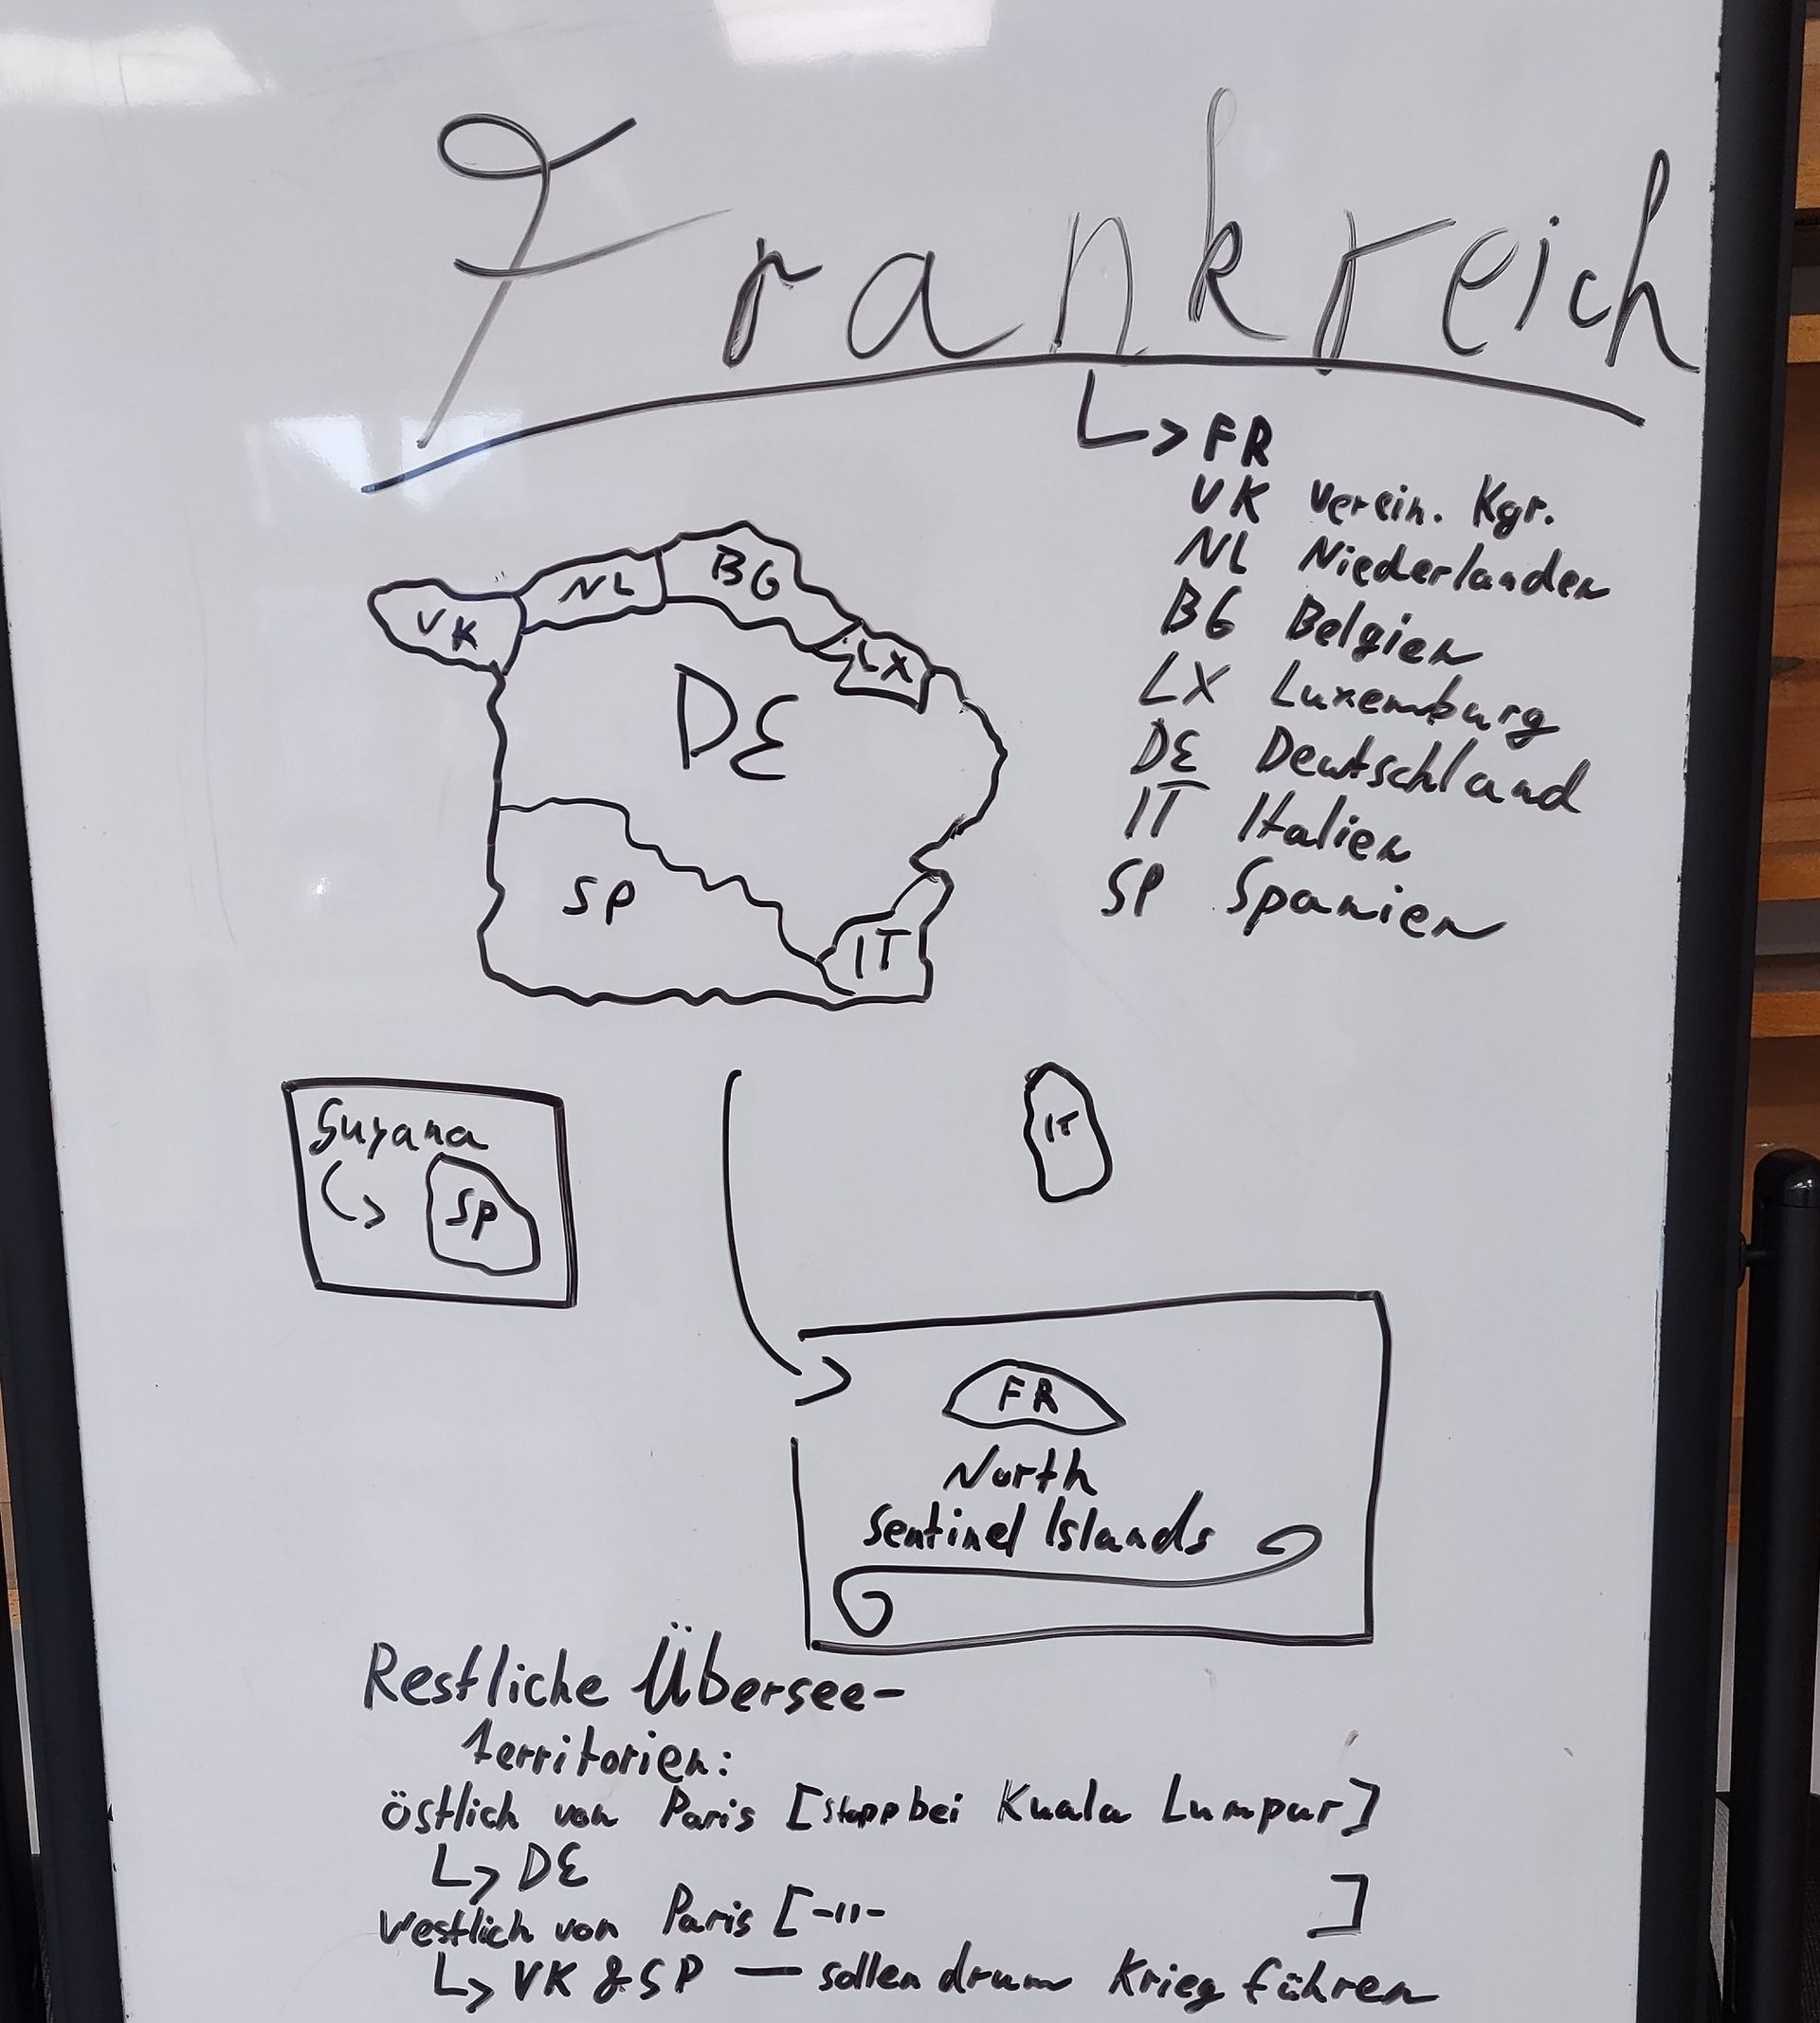 Frankreich
↳ FR
VK Verein. Kgr.
NL Niederlanden
BG Belgien
LX Luxemburg
DE Deutschland
IT Italien
SP Spanien
VK
NL
BG
LX
DE
SP
IT
Guyana
SP
IT
FR
North
Sentinel Islands
Restliche Übersee-
territorien:
östlich von Paris [stopp bei Kuala Lumpur]
↳ DE
Westlich von Paris [-"- ]
↳ VK & SP — sollen drum Krieg führen